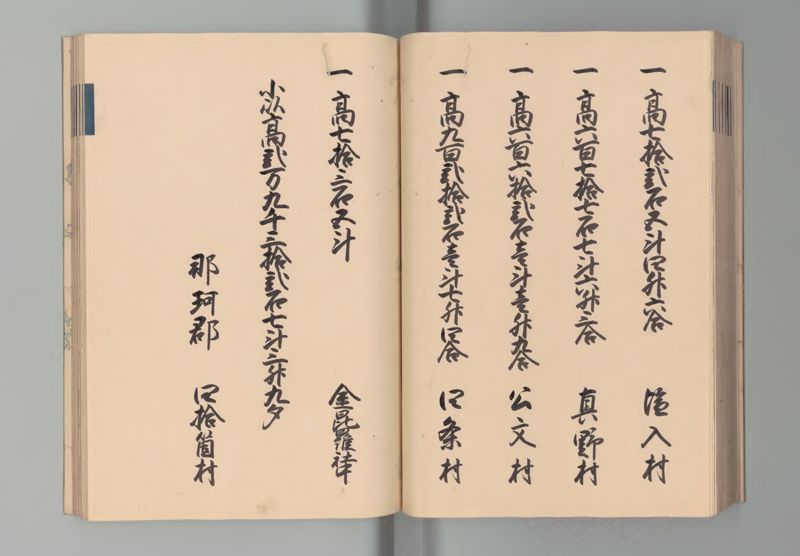 一 高七拾弐石五斗四升六合 塩入村
一 高六百七拾七石七斗六升三合 真野村
一 高六百六拾弐石壱斗壱升九合 公文村
一 高九百弐拾弐石壱斗七升四合 四条村
一 高七拾三石五斗 金毘羅
小以高弐万九千三拾弐石七斗三升九夕
那珂郡 四拾箇村